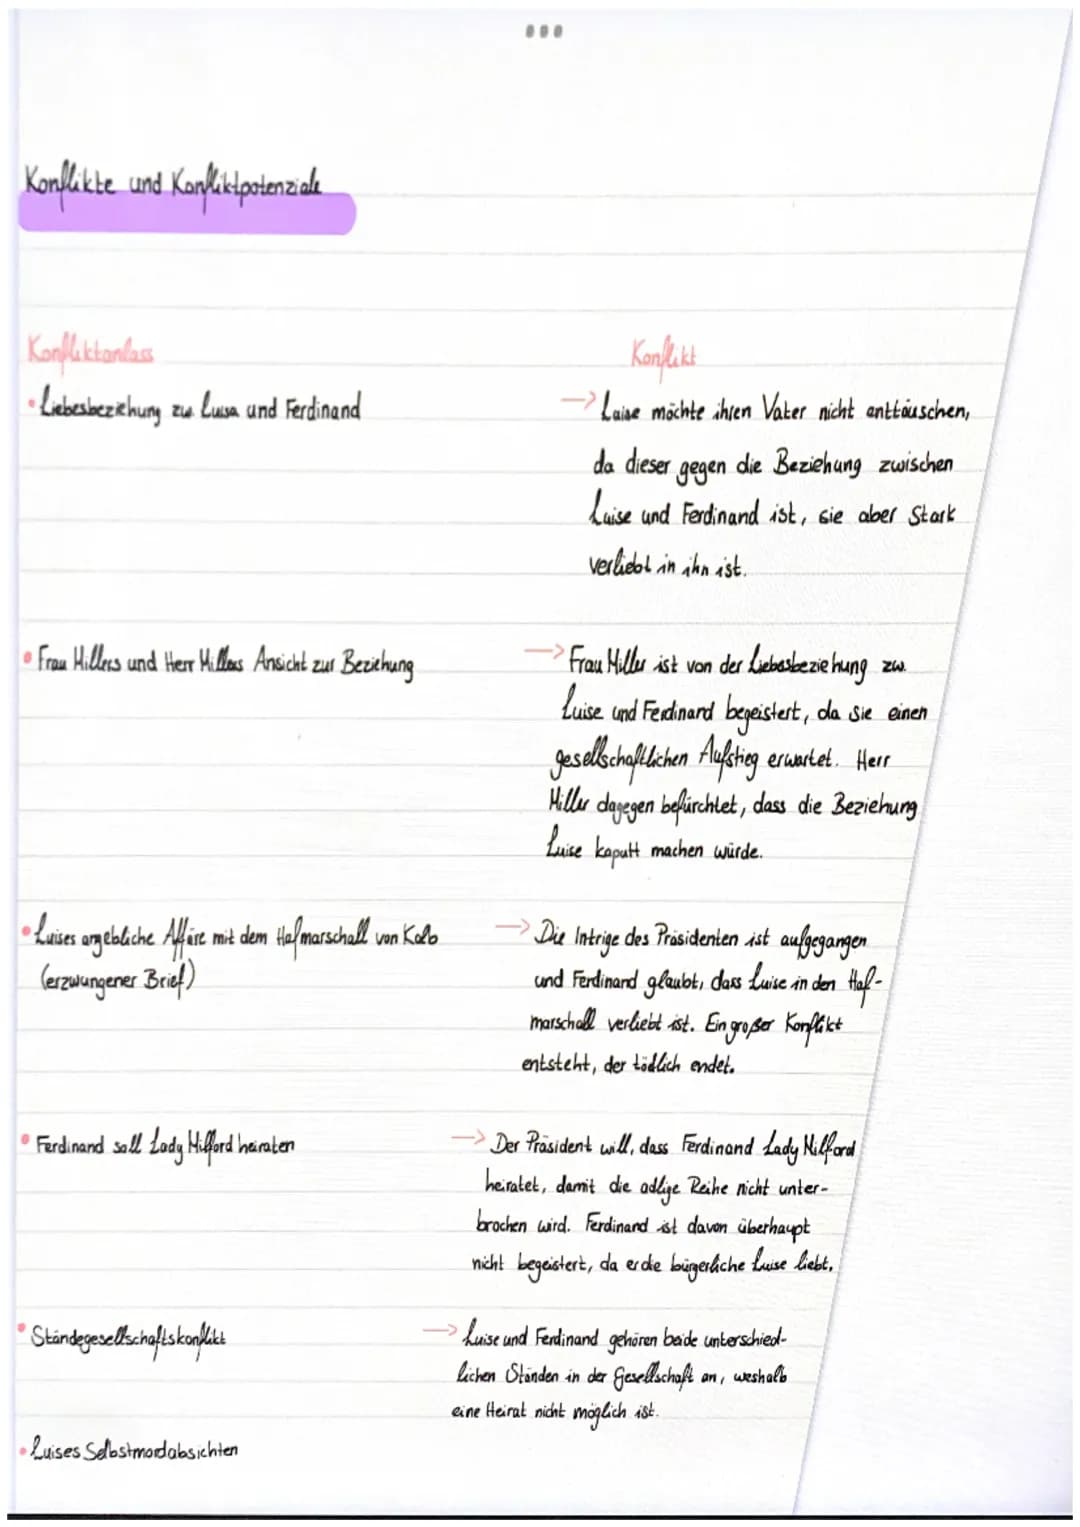 Konflikte und Konfliktpotenziale
Konfliktanlass
Konflikt
• Liebesbeziehung zw. Luisa und Ferdinand
-> Luise möchte ihren Vater nicht enttäuschen,
da dieser gegen die Beziehung zwischen
Luise und Ferdinand ist, sie aber Stark
verliebt in ihn ist.
• Frau Millers und Herr Millers Ansicht zur Beziehung
-> Frau Miller ist von der Liebesbeziehung zw.
Luise und Ferdinand begeistert, da sie einen
gesellschaftlichen Aufstieg erwartet. Herr
Miller dagegen befürchtet, dass die Beziehung
Luise kaputt machen würde.
• Luises angebliche Affäre mit dem Hofmarschall von Kalb
(erzwungener Brief)
-> Die Intrige des Präsidenten ist aufgegangen
und Ferdinand glaubt, dass Luise in den Hof-
marschall verliebt ist. Ein großer Konflikt
entsteht, der tödlich endet.
• Ferdinand soll Lady Milford heiraten
-> Der Präsident will, dass Ferdinand Lady Milford
heiratet, damit die adlige Reihe nicht unter-
brochen wird. Ferdinand ist davon überhaupt
nicht begeistert, da er die bürgerliche Luise liebt.
• Ständegesellschaftskonflikt
-> Luise und Ferdinand gehören beide unterschied-
lichen Ständen in der Gesellschaft an, weshalb
eine Heirat nicht möglich ist.
• Luises Selbstmordabsichten